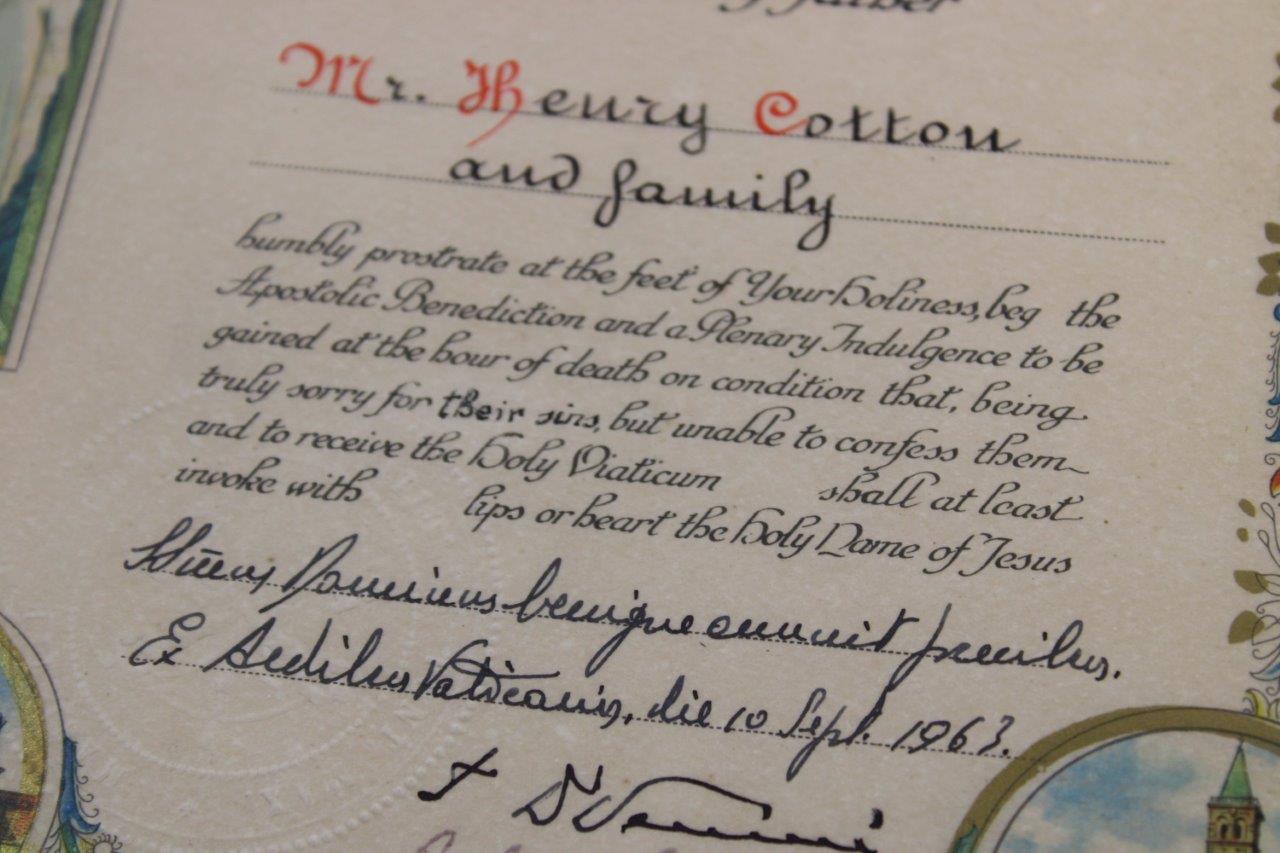 Father
Mr. Henry Cotton
and family
humbly prostrate at the feet of Your Holiness, beg the
Apostolic Benediction and a Plenary Indulgence to be
gained at the hour of death on condition that, being
truly sorry for their sins, but unable to confess them
and to receive the Holy Viaticum shall at least
invoke with lips or heart the Holy Name of Jesus
Dominus benigne annuit precibus.
Ex Aedibus Vaticanis, die 10 Sept. 1963.